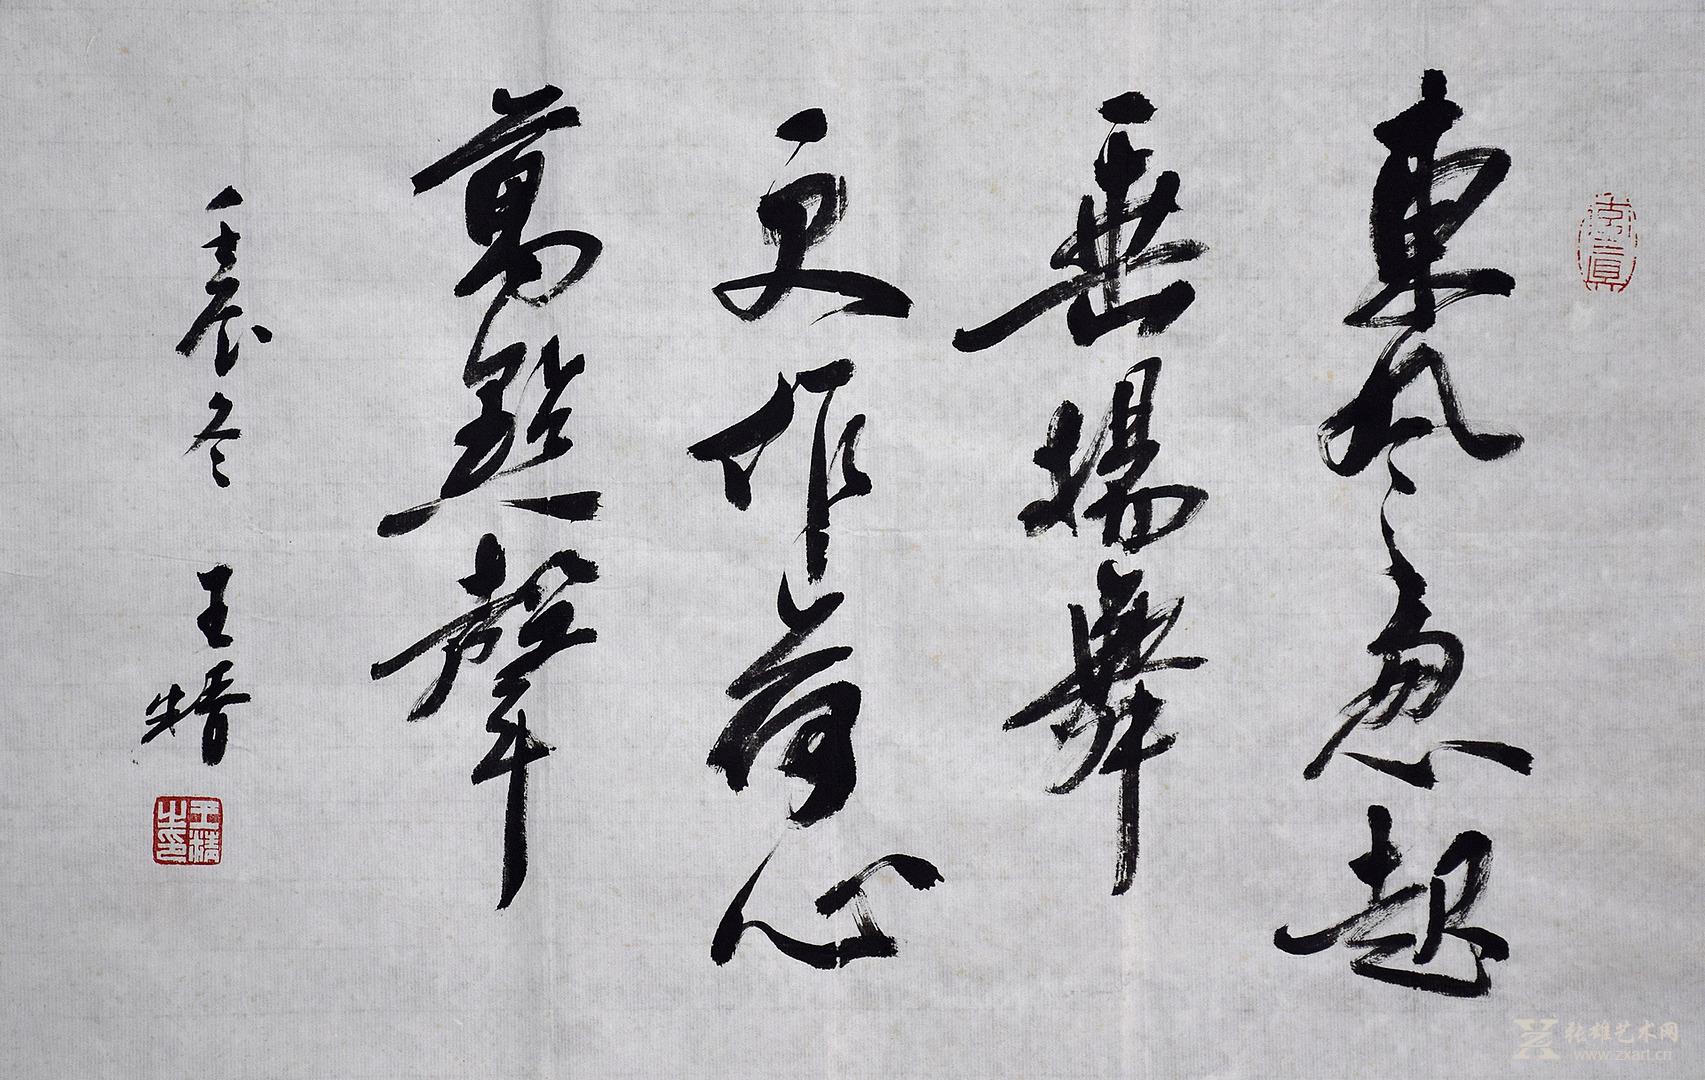 東風忽起
垂楊舞
更作荷心
萬點聲
壬辰冬 王精
王精之印
张雄艺术网
www.zxart.cn